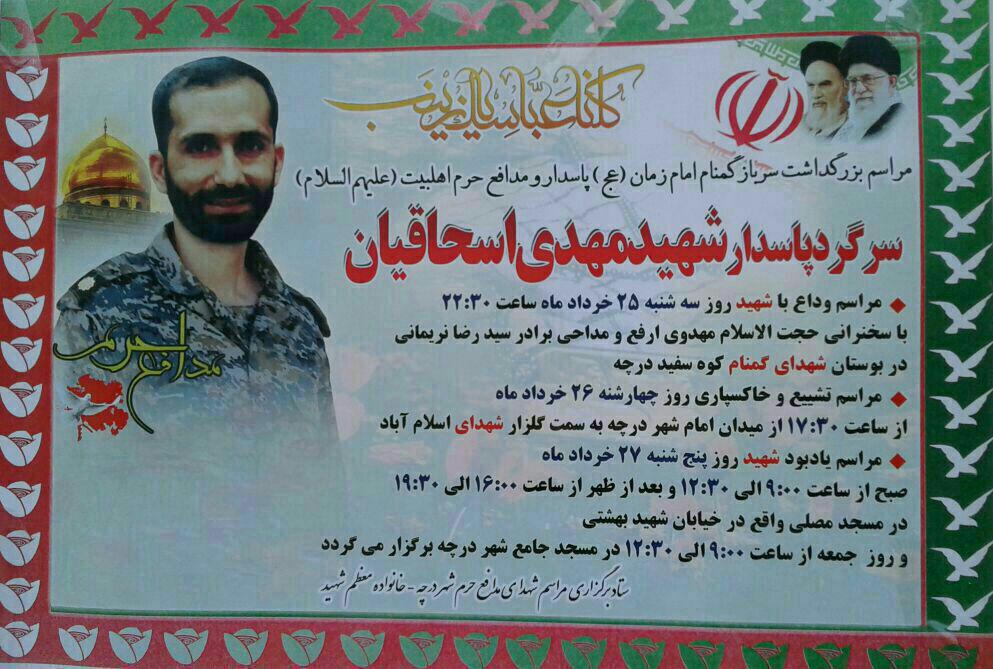 کلنا عباسک یا زینب
مراسم بزرگداشت سرباز گمنام امام زمان (عج) پاسدار و مدافع حرم اهلبیت (علیهم السلام)
سرگرد پاسدار شهید مهدی اسحاقیان
مراسم وداع با شهید روز سه شنبه ۲۵ خرداد ماه ساعت ۲۲:۳۰
با سخنرانی حجت الاسلام مهدوی ارفع و مداحی برادر سید رضا نریمانی
در بوستان شهدای گمنام کوه سفید درچه
مراسم تشییع و خاکسپاری روز چهارشنبه ۲۶ خرداد ماه
از ساعت ۱۷:۳۰ از میدان امام شهر درچه به سمت گلزار شهدای اسلام آباد
مراسم یادبود شهید روز پنج شنبه ۲۷ خرداد ماه
صبح از ساعت ۹:۰۰ الی ۱۲:۳۰ و بعد از ظهر از ساعت ۱۶:۰۰ الی ۱۹:۳۰
در مسجد مصلی واقع در خیابان شهید بهشتی
و روز جمعه از ساعت ۹:۰۰ الی ۱۲:۳۰ در مسجد جامع شهر درچه برگزار می گردد
ستاد برگزاری مراسم شهدای مدافع حرم شهر درچه - خانواده معظم شهید
مدافع حرم